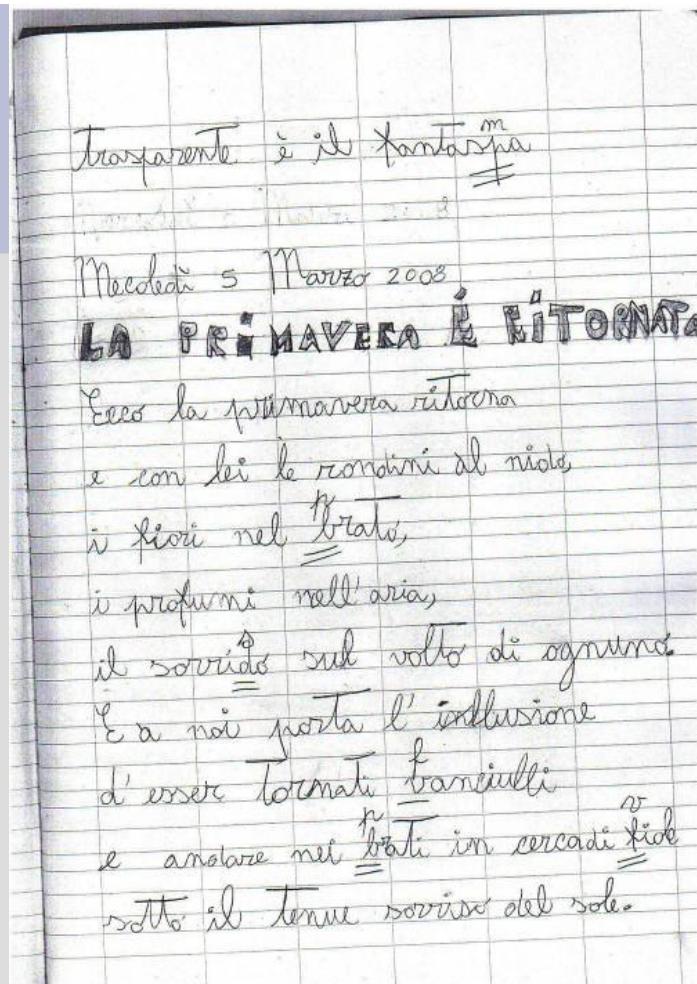 trasparente è il fantaspa
m
Mecoledì 5 Marzo 2008
LA PRIMAVERA È RITORNATA
Ecco la primavera ritorna
e con lei le rondini al nido,
p
i fiori nel brato,
i profumi nell'aria,
s
il sorrido sul volto di ognuno.
E a noi porta l'inllusione
f
d'esser tornati banciulli
p v
e andare nei brati in cercadi fiole
sotto il tenue sorriso del sole.